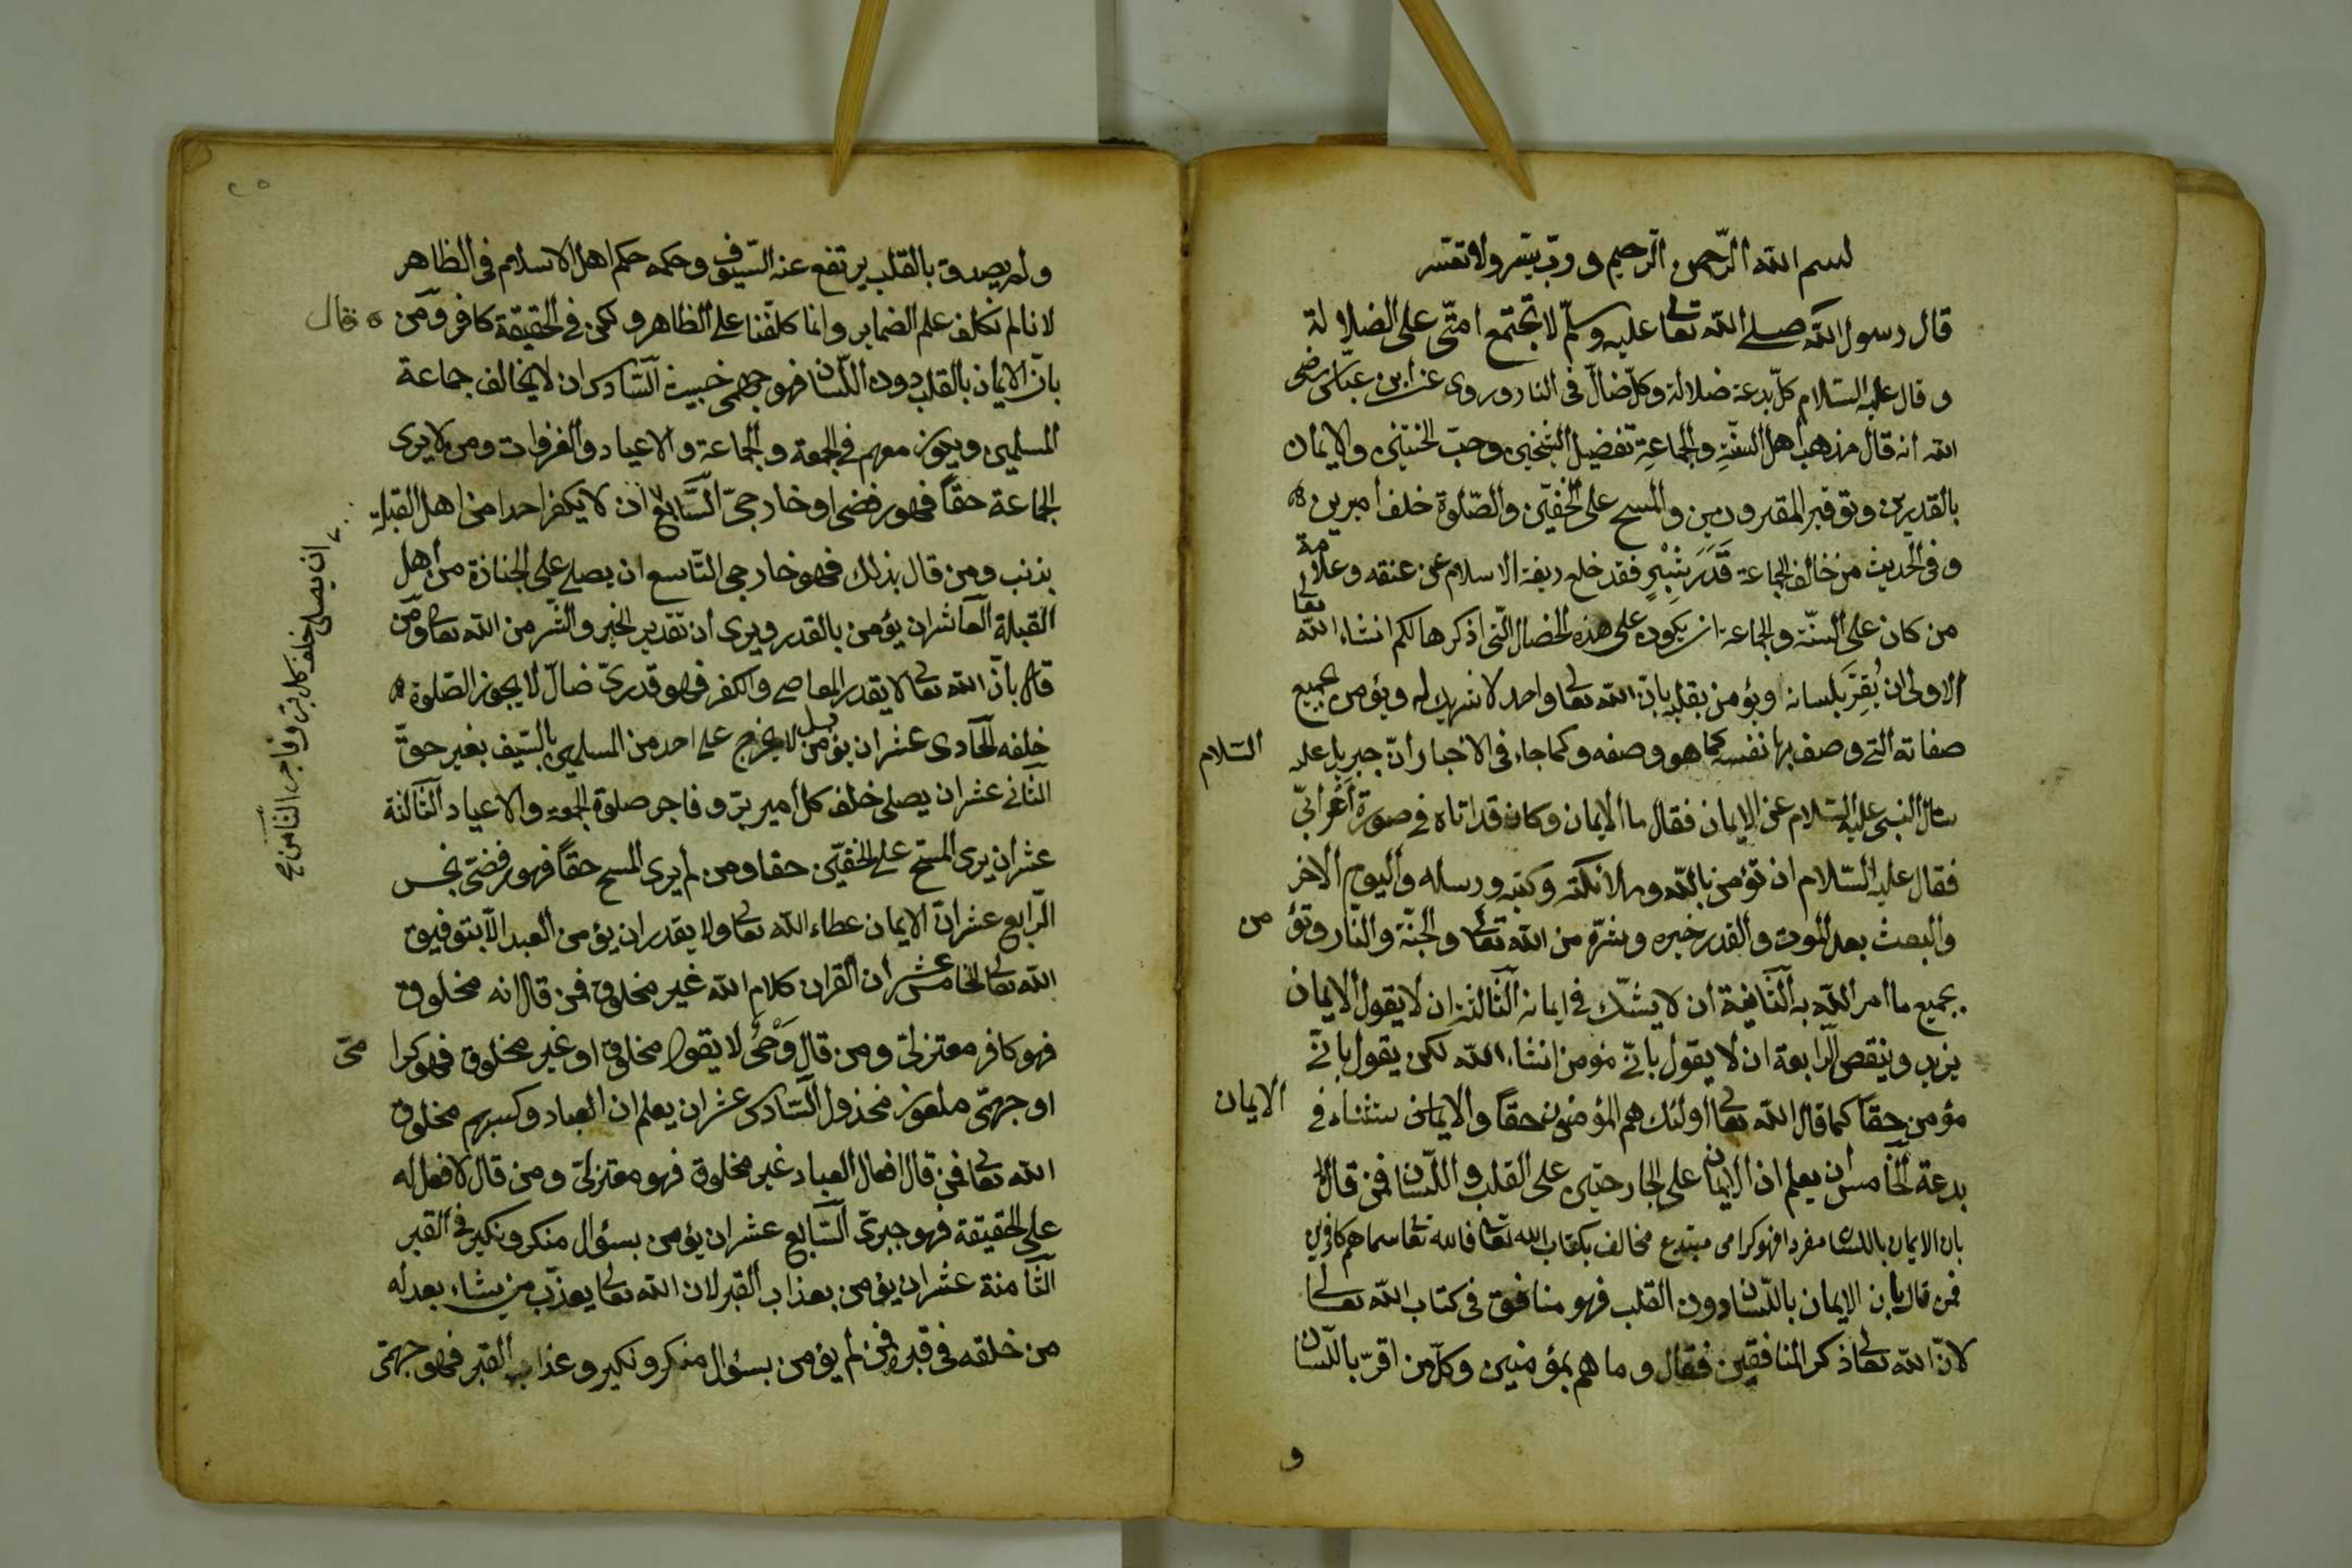 بسم الله الرّحمن الرّحيم وربّ يسّر ولا تعسّر
قال رسول الله صلى الله تعالى عليه وسلّم لا تجتمع امّتى على الضلالة
وقال عليه السّلام كلّ بدعة ضلالة وكلّ ضالّ فى النار وروى عن ابن عبّاس رضى
الله انه قال مذهب اهل السنّةِ والجماعةِ تفضيل الشيخين وحبّ الختنين والايمان
بالقدرين وتوقير المقبرين والمسح على الخفّين والصّلوة خلف اميرين
وفى الحديث من خالف الجماعة قَدَرَ شِبْرٍ فقد خلع ربقة الاسلام عن عنقه وعلامة
من كان على السنّة والجماعة ان يكون على هذه الخصال الّتى اذكرها لكم انشاء الله تعالى
الاولى ان يُقِرَّ بلسانه ويؤمن بقلبه بانّ الله تعالى واحد لا شريك له ويؤمن بجميع
صفاته التى وصف بها نفسه كما هو وصفه وكما جاء فى الاخبار انّ جبريل عليه السّلام
سال النبى عليه السّلام عن الايمان فقال ما الايمان وكان قد اتاه فى صورة اَعْرابىّ
فقال عليه السّلام ان تؤمن بالله وملائكته وكتبه ورسله واليوم الاخر
والبعث بعد الموت والقدر خيره وشرّه من الله تعالى والجنّة والنّار وتؤمن
بجميع ما امر الله به الثّانية ان لا يشكّ فى ايمانه الثّالثة ان لا يقول الايمان
يزيد وينقص الرابعة ان لا يقول بانّى مؤمن انشاء الله لكن يقول بانّى
مؤمن حقّا كما قال الله تعالى اولئك هم المؤمنون حقّا والايمان ستثناء فى الايمان
بدعة الخامس ان يعلم ان الايمان على الجارحتين على القلب واللّسان فمن قال
بان الايمان باللسان مفردا فهو كرامى مبتدع مخالف بكتاب الله تعالى فالله تعالى سماهم كافرين
فمن قال بان الايمان باللّسان دون القلب فهو منافق فى كتاب الله تعالى
لانّ الله تعالى ذكر المنافقين فقال وما هم بمؤمنين وكلّ من اقرّ باللّسان
و
ولم يصدق بالقلب يرتفع عنه السّيوف وحكمه حكم اهل الاسلام فى الظاهر
لانا لم نكلف علم الضماير وانما كلفنا على الظاهر ولكن فى الحقيقة كافر ومن قال
بانّ الايمان بالقلب دون اللّسان فهو جهمى خبيث السّادس ان لا يخالف جماعة
المسلمين ويجوز معهم فى الجمعة والجماعة والاعياد والغزوات ومن لا يرى
الجماعة حقّاً فهو رفضى او خارجىّ السّابع ان لا يكفر احدا من اهل القبلة
بذنب ومن قال بذلك فهو خارجى التّاسع ان يصلى على الجنازة من اهل
القبلة العاشر ان يؤمن بالقدر ويرى ان تقدير الخير والشر من الله تعالى ومن
قال بانّ الله تعالى لا يقدر المعاصى والكفر فهو قدرىّ ضالّ لا يجوز الصّلوة
خلفه الحادى عشر ان يؤمن بل لا يخرج على احد من المسلمين بالسّيف بغير حقّ
الثّانى عشر ان يصلى خلف كل امير برّ وفاجر صلوة الجمعة والاعياد الثّالثة
عشر ان يرى المسح على الخفّين حقا ومن لم يرى المسح حقّاً فهو رفضىّ نجس
الرّابع عشر انّ الايمان عطاء الله تعالى ولا يقدر ان يؤمن العبد الّا بتوفيق
الله تعالى الخامس عشر ان القران كلام الله غير مخلوق فمن قال انه مخلوق
فهو كافر معتزلىّ ومن قال وَحْىٌ لا يقول مخلوق او غير مخلوق فهو كرامىّ
او جهمّى ملعون مخذول السّادس عشر ان يعلم ان العباد وكسبهم مخلوق
الله تعالى فمن قال افعال العباد غير مخلوق فهو معتزلىّ ومن قال لا فعل له
على الحقيقة فهو جبرىّ السّابع عشر ان يؤمن بسؤال منكر ونكير فى القبر
الثّامنة عشر ان يؤمن بعذاب القبر لان الله تعالى يعذّب من يشاء بعدله
من خلقه فى قبره فمن لم يؤمن بسؤال منكر ونكير وعذاب القبر فهو جهمّى
ان يصلى خلف كل برّ وفاجر الثامن صح